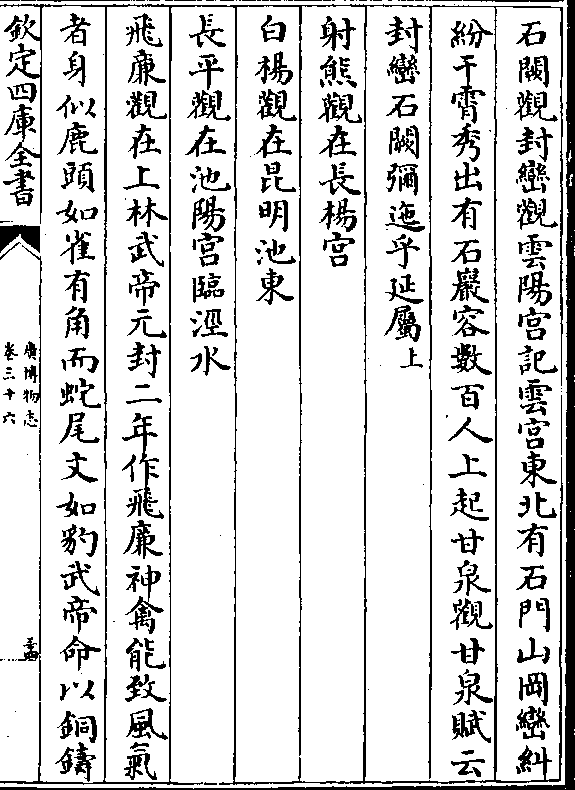 石闕觀封巒觀雲陽宮記雲宮東北有石門山岡巒糾
紛干霄秀出有石巖容數百人上起甘泉觀甘泉賦云
封巒石闕彌迤乎延屬上
射熊觀在長楊宮
白楊觀在昆明池東
長平觀在池陽宮臨涇水
飛廉觀在上林武帝元封二年作飛廉神禽能致風氣
者身似鹿頭如雀有角而蛇尾文如豹武帝命以銅鑄
欽定四庫全書
廣博物志
卷三十六